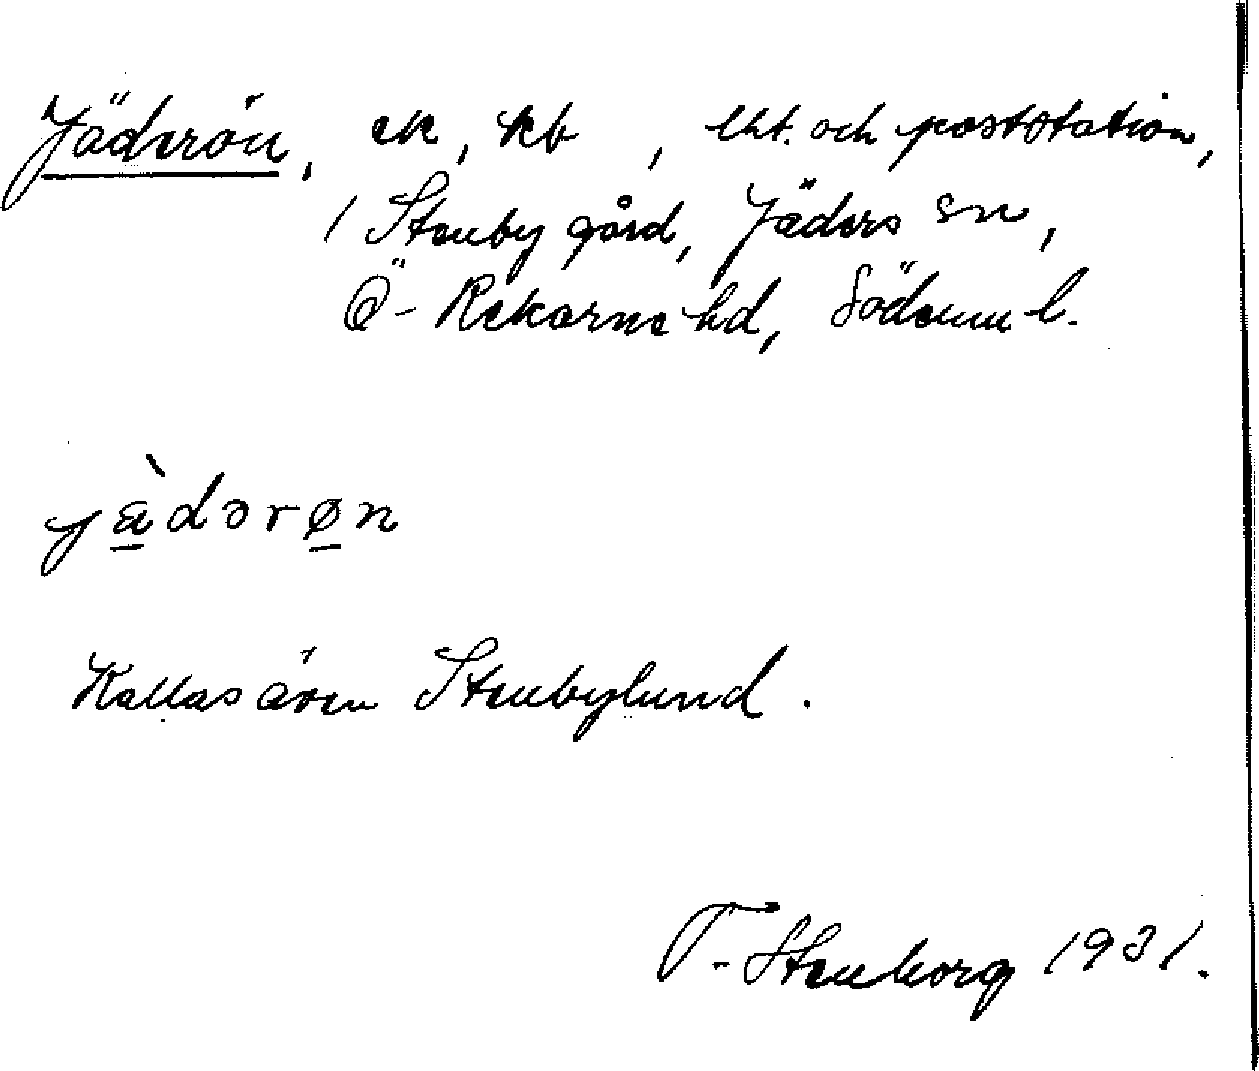 Jäderön, ek, kb, lht. och poststation,
/ Stenby gård, Jäders sn,
Ö-Rekarne hd, Södermn l.
jä̀dərøn
Kallas även Stenbylund.
T. Stenborg 1931.